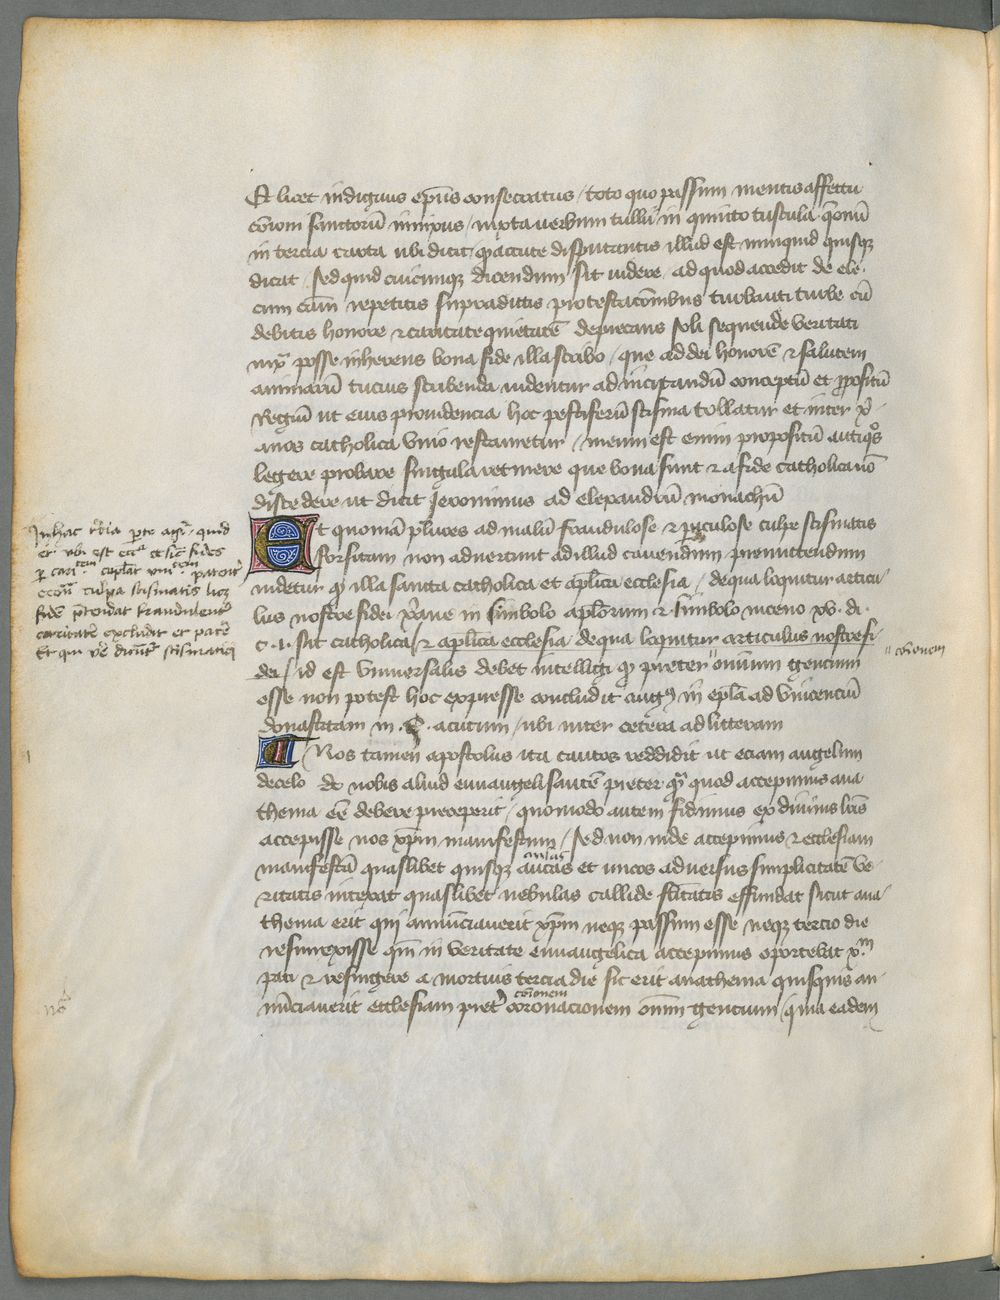 Et licet indignus ep̄us consecratus / toto quo possum mentis affectu
c̄oīom sanctorū innixus / iuxta uerbum tullii in quinto tuscula. q̄onū
in tercia carta ubi dicit / accute disputantis illud est nunquid quisqꝫ
dicat / sed quid cuicunqꝫ dicendum sit uidere / ad quod accedit de ele.
cum eām repetitis supradictis protestac̄onibus turbauti turbe cū
debitis honore ⁊ caritate quietatē deprecans soli sequende ueritati
iux̄ posse inherens bona fide illa scribo / que ad dei honorē ⁊ salutem
animarū tucius scribenda uidentur ad incitandū conceptū et ꝓpositū
Regiū ut eius prouidencia hoc pestiferū scisma tollatur et inter xp̄i.
anos catholica vnio restauretur / meum est enim propositū antiq̄os
legere probare singula retinere que bona sunt ⁊ a fide catholica nō
discedere ut dicit Jeronimus ad elexandrū monachū
Et quoniā plures ad malū fraudulose ⁊ ꝑiculose culpe scismatis
forsitam non aduertunt ad illud cauendum premittendum
uidetur ꝙ illa sancta catholica et ap̄lica ecclesia / de qua loquitur articu
lus nostre fidei xp̄iane in simbolo ap̄lorum ⁊ simbolo niceno xv. di.
c. 1. sit catholica / ⁊ ap̄lica ecclesia de qua loquitur articulus nostre fi
dei / id est vniuersalis debet intelligi ꝙ preter " omnium gencium
esse non potest hoc expresse concludit Augꝰ in ep̄la ad vincenciū
donastitam in . C . acutum / ubi inter cetera ad litteram
Nos tamen apostolus ita cautos reddidit ut eciam angelum
de celo de nobis aliud euuangelisantē preter q̄ quod accepimus ana
thema eē debere preceperit / quomodo autem fidimus ex diuinis lr̄is
accepisse nos xp̄m manifestum / sed non inde accepimus ⁊ ecclesiam
manifestā quaslibet quisqꝫ aucas et uncos aduersus simplicitatē ve.
ritatis intexat quaslibet nebulas callide f̄citatis effundat sicut ana
thema erit qui annūciauerit xp̄m neqꝫ passum esse neqꝫ tercio die
resurrexisse q̄m in veritate euuangelica accepimus oportebat x̄m
pati ⁊ resurgere a mortuis tercia die sic erit anathema quisquis an
nūciauerit ecclesiam pret̄ coronacionem om̄m gencium / quia eadem
c̄oīonem
In hac
fides
culpa scismatis licꝫ
fidē p̄tendat fraudulent̄
caritatē excludit et
Et qui dicunt̄ scismatici
" c̄oīonem